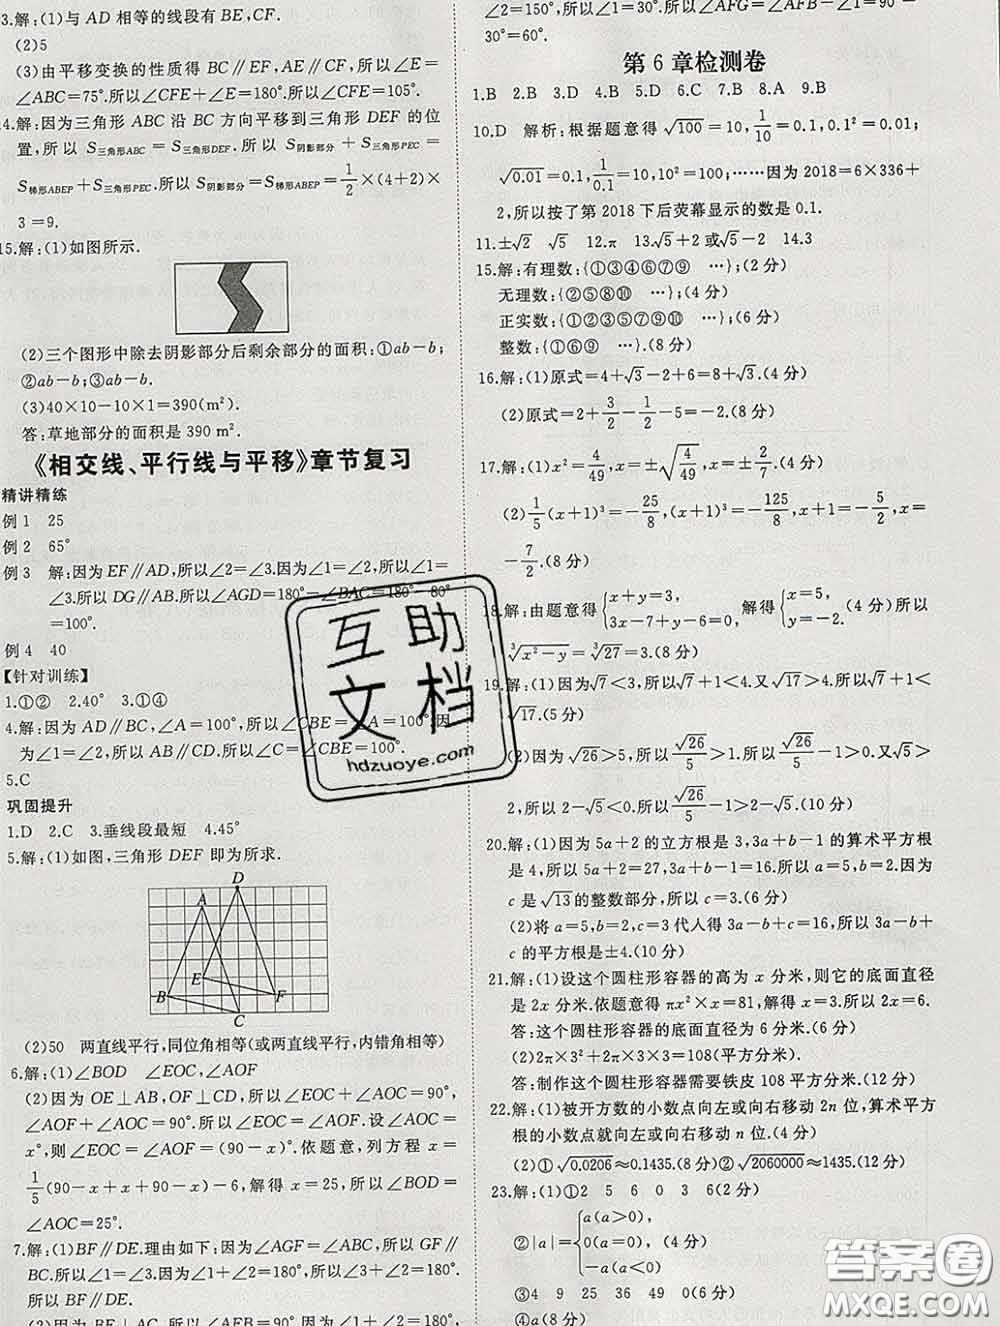 3.解:(1)与 AD 相等的线段有 BE,CF.
(2)5
(3)由平移变换的性质得 BC∥EF,AE∥CF,所以∠E=
∠ABC=75°.所以∠CFE+∠E=180°.所以∠CFE=105°.
14.解:因为三角形 ABC 沿 BC 方向平移到三角形 DEF 的位
置,所以 S三角形ABC=S三角形DEF.所以 S阴影部分+S三角形PEC=
S梯形ABEP+S三角形PEC.所以 S阴影部分=S梯形ABEP=1/2×(4+2)×
3=9.
15.解:(1)如图所示.
(2)三个图形中除去阴影部分后剩余部分的面积:①ab-b;
②ab-b;③ab-b.
(3)40×10-10×1=390(m²).
答:草地部分的面积是 390 m².
《相交线、平行线与平移》章节复习
精讲精练
例 1 25
例 2 65°
例 3 解:因为 EF∥AD,所以∠2=∠3.因为∠1=∠2,所以∠1=
∠3.所以 DG∥AB.所以∠AGD=180°-∠BAC=180°-80°
=100°.
例 4 40
【针对训练】
1.①② 2.40° 3.①④
4.解:因为 AD∥BC,∠A=100°,所以∠CBE=∠A=100°.因
为∠1=∠2,所以 AB∥CD.所以∠C=∠CBE=100°.
5.C
巩固提升
1.D 2.C 3.垂线段最短 4.45°
5.解:(1)如图,三角形 DEF 即为所求.
D
A
E
B
F
C
(2)50 两直线平行,同位角相等(或两直线平行,内错角相等)
6.解:(1)∠BOD ∠EOC,∠AOF
(2)因为 OE⊥AB,OF⊥CD,所以∠EOC+∠AOC=90°,
∠AOF+∠AOC=90°.所以∠EOC=∠AOF.设∠AOC=
x°,则∠EOC=∠AOF=(90-x)°.依题意,列方程 x=
1/5(90-x+x+90-x)-6,解得 x=25,所以∠BOD=
∠AOC=25°.
7.解:(1)BF∥DE.理由如下:因为∠AGF=∠ABC,所以 GF∥
BC.所以∠1=∠3.因为∠1+∠2=180°,所以∠3+∠2=180°.
所以 BF∥DE.
(2)因为 BF⊥AC,所以∠AFB=90°.因为∠1+∠2=180°,
∠2=150°,所以∠1=30°.所以∠AFG=∠AFB-∠1=90°-
30°=60°.
第 6 章检测卷
1.B 2.B 3.D 4.B 5.D 6.C 7.B 8.A 9.B
10.D 解析:根据题意得 √100=10,1/10=0.1,0.1²=0.01;
√0.01=0.1,1/0.1=10,10²=100;……因为 2018=6×336+
2,所以按了第 2018 下后荧幕显示的数是 0.1.
11.±√2 √5 12.π 13.√5+2 或√5-2 14.3
15.解:有理数:{①③④⑥⑦⑨ …};(2 分)
无理数:{②⑤⑧⑩ …};(4 分)
正实数:{①③⑤⑥⑦⑧⑨⑩ …};(6 分)
整数:{①⑥⑨ …}.(8 分)
16.解:(1)原式=4+√3-2+6=8+√3.(4 分)
(2)原式=2+3/2-1/2-5=-2.(8 分)
17.解:(1)x²=4/49,x=±√(4/49)=±2/7.(4 分)
(2)1/5(x+1)³=-25/8,(x+1)³=-125/8,x+1=-5/2,x=
-7/2.(8 分)
18.解:由题意得{x+y=3, 3x-7+y-6=0; 解得{x=5, y=-2. (4 分)所以
∛(x²-y)=∛27=3.(8 分)
19.解:(1)因为√7<3,所以√7+1<4.又√17>4.所以√7+1<
√17.(5 分)
(2)因为 √26>5,所以√26/5>1.所以√26/5-1>0.又√5>
2,所以 2-√5<0.所以√26/5-1>2-√5.(10 分)
20.解:(1)因为 5a+2 的立方根是 3,3a+b-1 的算术平方根
是 4,所以 5a+2=27,3a+b-1=16.所以 a=5,b=2.因为
c 是√13的整数部分,所以 c=3.(6 分)
(2)将 a=5,b=2,c=3 代人得 3a-b+c=16,所以 3a-b+
c 的平方根是±4.(10 分)
21.解:(1)设这个圆柱形容器的高为 x 分米,则它的底面直径
是 2x 分米.依题意得 πx²×x=81,解得 x=3.所以 2x=6.
答:这个圆柱形容器的底面直径为 6 分米.(6 分)
(2)2π×3²+2π×3×3=108(平方分米).
答:制作这个圆柱形容器需要铁皮 108 平方分米.(12 分)
22.解:(1)被开方数的小数点向左或向右移动 2n 位,算术平方
根的小数点就向左或向右移动 n 位.(4 分)
(2)①√0.0206≈0.1435.(8 分)②√2060000≈1435.(12 分)
23.解:(1)①2 5 6 0 3 6(2 分)
②|a|={a(a>0), 0(a=0), -a(a<0) (4 分)
③4 9 25 36 49 0(6 分)
④a(8 分)
互助文档
hdzuoye.com
答案圈
MXQE.COM